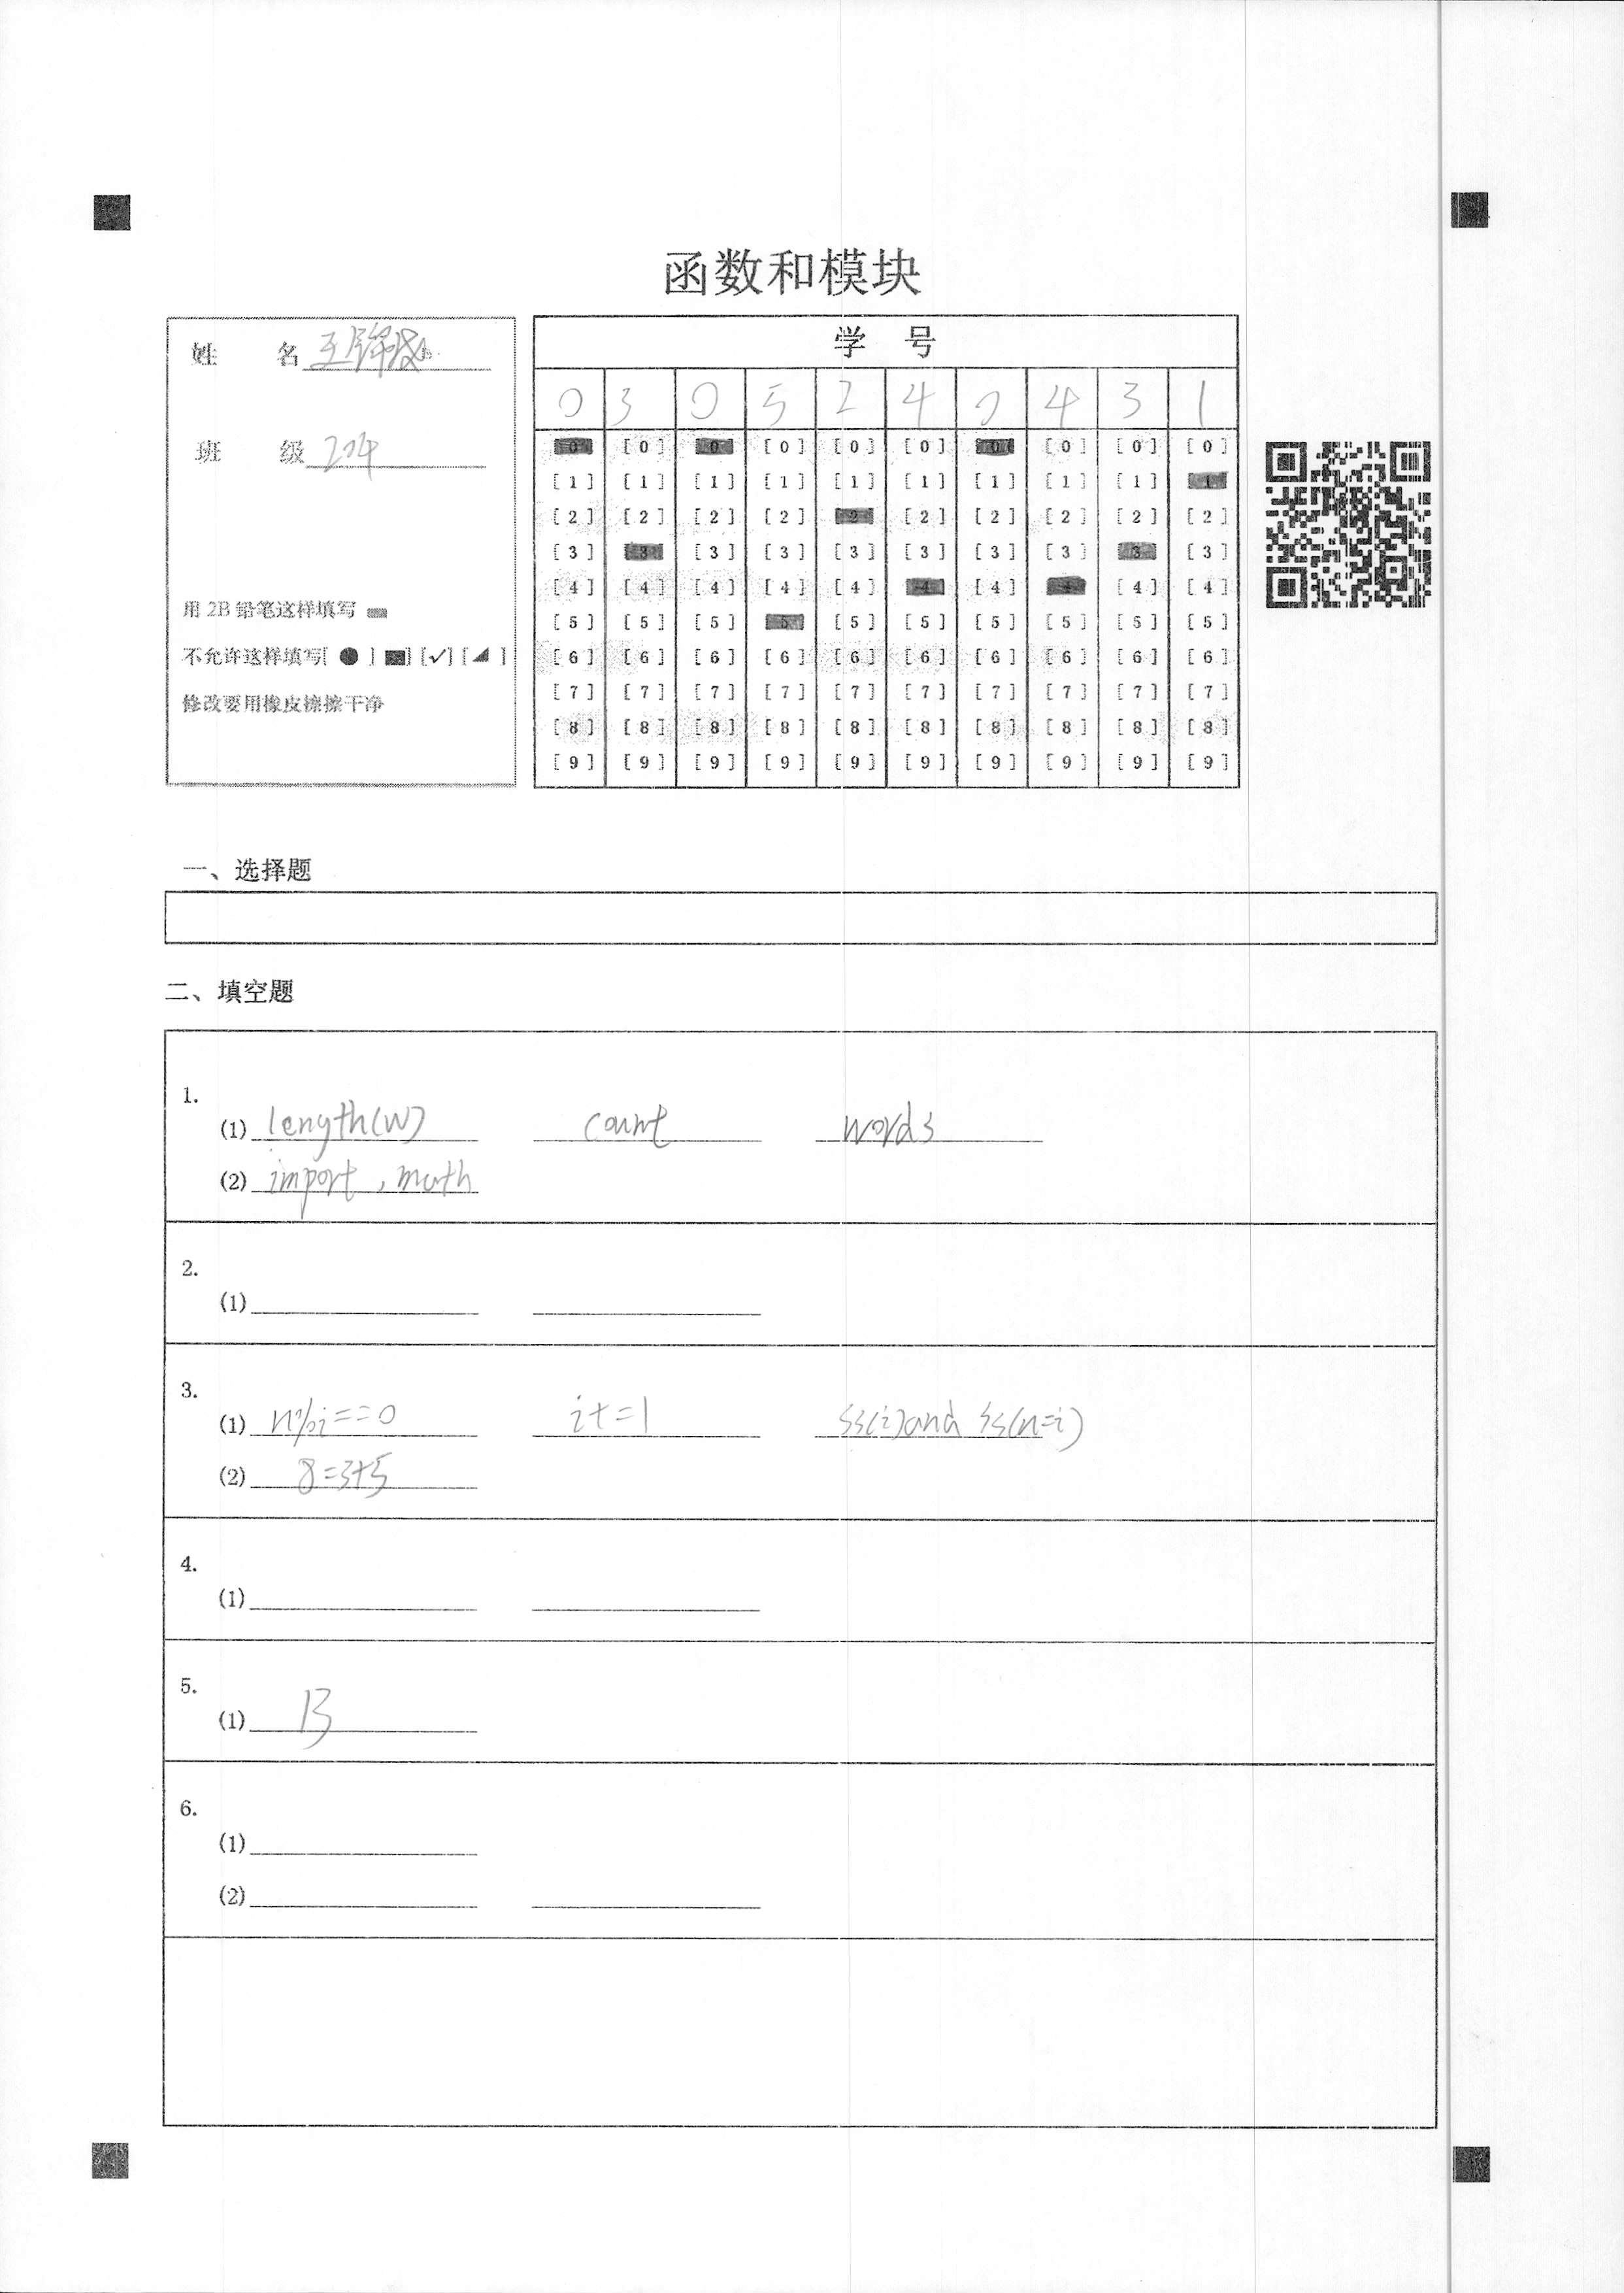 函数和模块
姓 名 王
班 级 204
用 2B 铅笔这样填写
不允许这样填写[ ● ] [■] [✓] [◢ ]
修改要用橡皮擦擦干净
学 号
0 3 0 5 2 4 0 4 3 1
[0] [0] [0] [0] [0] [0] [0] [0] [0] [0]
[1] [1] [1] [1] [1] [1] [1] [1] [1] [1]
[2] [2] [2] [2] [2] [2] [2] [2] [2] [2]
[3] [3] [3] [3] [3] [3] [3] [3] [3] [3]
[4] [4] [4] [4] [4] [4] [4] [4] [4] [4]
[5] [5] [5] [5] [5] [5] [5] [5] [5] [5]
[6] [6] [6] [6] [6] [6] [6] [6] [6] [6]
[7] [7] [7] [7] [7] [7] [7] [7] [7] [7]
[8] [8] [8] [8] [8] [8] [8] [8] [8] [8]
[9] [9] [9] [9] [9] [9] [9] [9] [9] [9]
一、选择题
二、填空题
1.
(1) length(w) count words
(2) import , math
2.
(1)
3.
(1) n%i==0 i+=1 ss(i)and ss(n=i)
(2) 8=3+5
4.
(1)
5.
(1) 13
6.
(1)
(2)